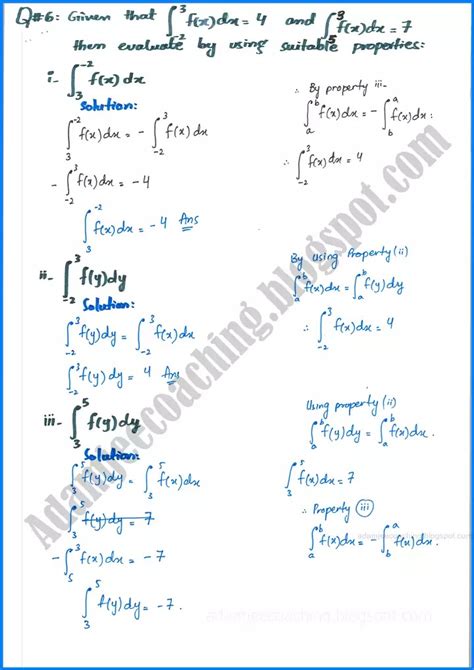 Q#6: Given that ∫₋₂³ f(x)dx = 4 and ∫₅³ f(x)dx = 7
then evaluate by using suitable properties:
i- ∫₃⁻² f(x) dx
Solution:
∫₃⁻² f(x)dx = - ∫₋₂³ f(x)dx
- ∫₋₂³ f(x)dx = -4
∫₃⁻² f(x)dx = -4 Ans
∴ By property iii-
∫ₐᵇ f(x)dx = - ∫ᵇₐ f(x)dx.
∴ ∫₋₂³ f(x)dx = 4
ii- ∫₋₂³ f(y)dy
Solution:
∫₋₂³ f(y)dy = ∫₋₂³ f(x)dx
∫₋₂³ f(y)dy = 4 Ans
By using Property (ii)
∫ₐᵇ f(x)dx = ∫ₐᵇ f(y)dy
∴ ∫₋₂³ f(x)dx = 4
iii- ∫₃⁵ f(y)dy
Solution:
∫₃⁵ f(y)dy = ∫₃⁵ f(x)dx
∫₃⁵ f(y)dy = 7
- ∫₅³ f(x)dx = -7
∫₃⁵ f(y)dy = -7.
Using property (ii)
∫ₐᵇ f(y)dy = ∫ₐᵇ f(x)dx.
f(x)dx = 7
∴ Property (iii)
∫ₐᵇ f(x)dx = - ∫ᵇₐ f(x)dx.
Adamjeecoaching.blogspot.com
adamjeecoaching.blogspot.com
adamjeecoaching.blogspot.com